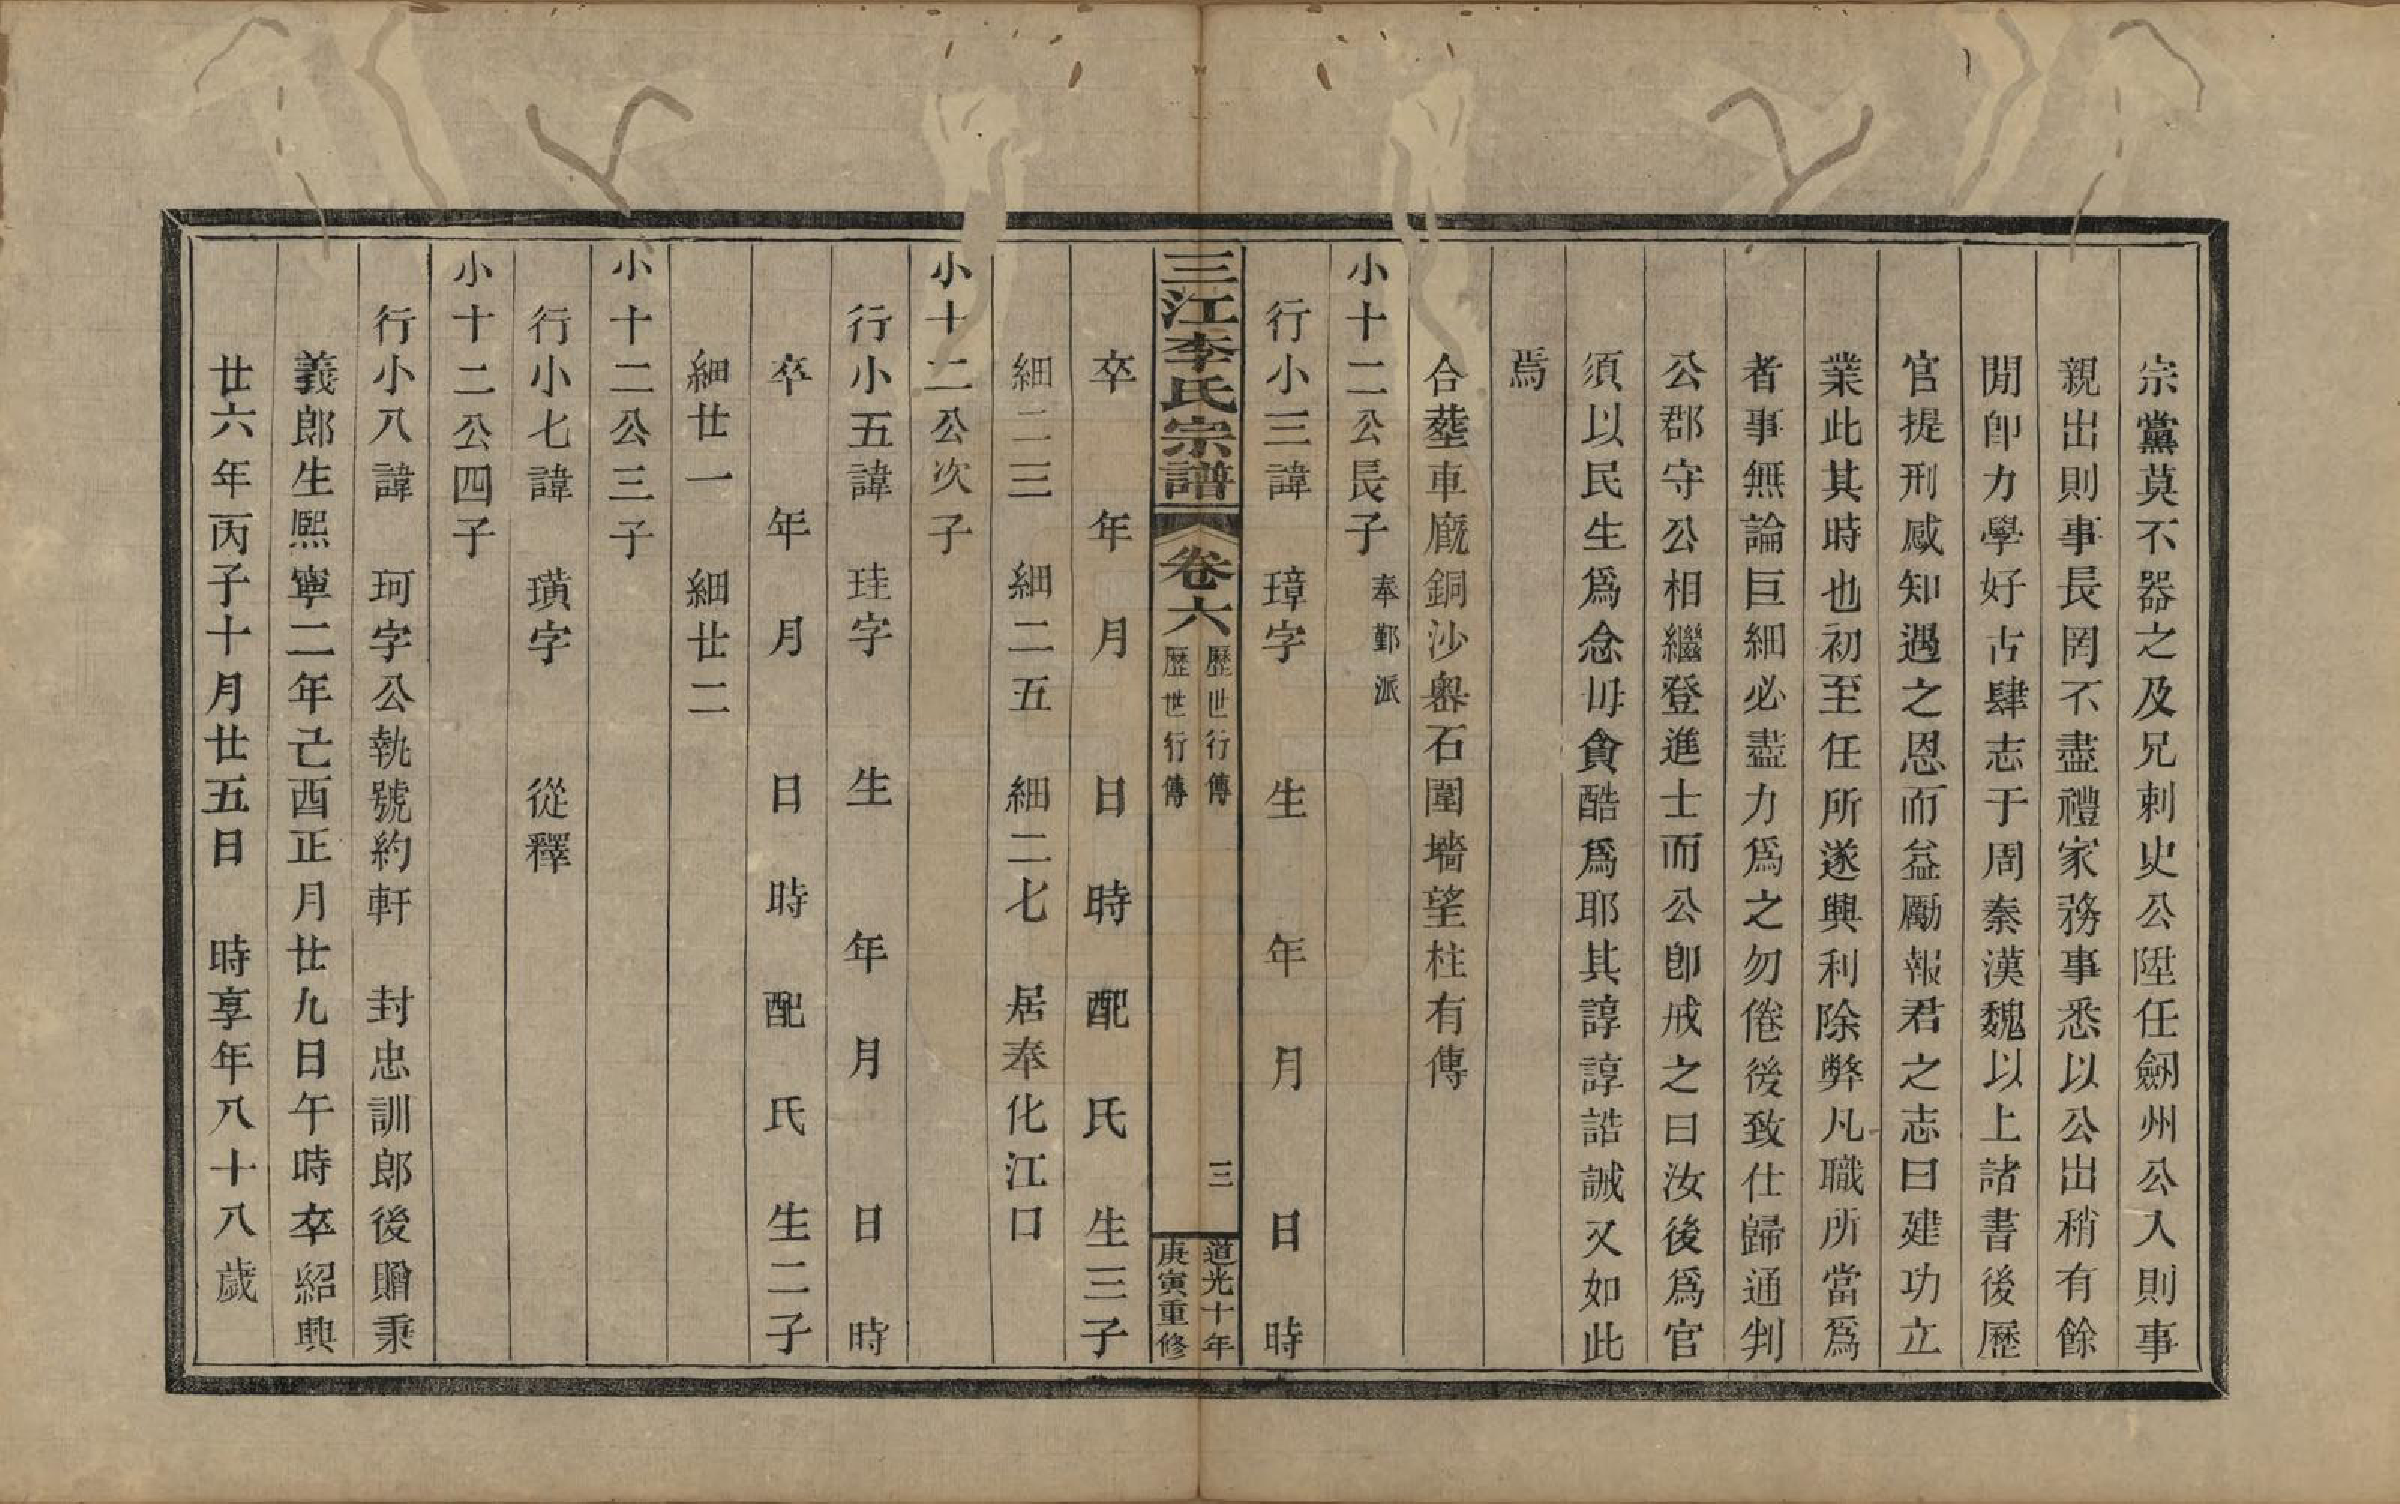 宗黨莫不器之及兄刺史公陞任劒州公入則事
親出則事長罔不盡禮家務事悉以公出稍有餘
閒卽力學好古肆志于周秦漢魏以上諸書後歷
官提刑感知遇之恩而益勵報君之志曰建功立
業此其時也初至任所遂興利除弊凡職所當爲
者事無論巨細必盡力爲之勿倦後致仕歸通判
公郡守公相繼登進士而公卽戒之曰汝後爲官
須以民生爲念毋貪酷爲耶其諄諄誥誡又如此
焉
合塟車廐銅沙奧石圍墻望柱有傳
小十二公長子 奉鄞派
行小三諱 璋字 生 年 月 日 時
三江李氏宗譜 卷六 歷世行傳 歷世行傳 三 道光十年 庚寅重修
卒 年 月 日 時 配 氏 生三子
細二三 細二五 細二七 居奉化江口
小十二公次子
行小五諱 珪字 生 年 月 日 時
卒 年 月 日 時 配 氏 生二子
細廿一 細廿二
小十二公三子
行小七諱 璜字 從釋
小十二公四子
行小八諱 珂字公執號約軒 封忠訓郎後贈秉
義郎生熙寧二年己酉正月廿九日午時卒紹興
廿六年丙子十月廿五日 時享年八十八歲